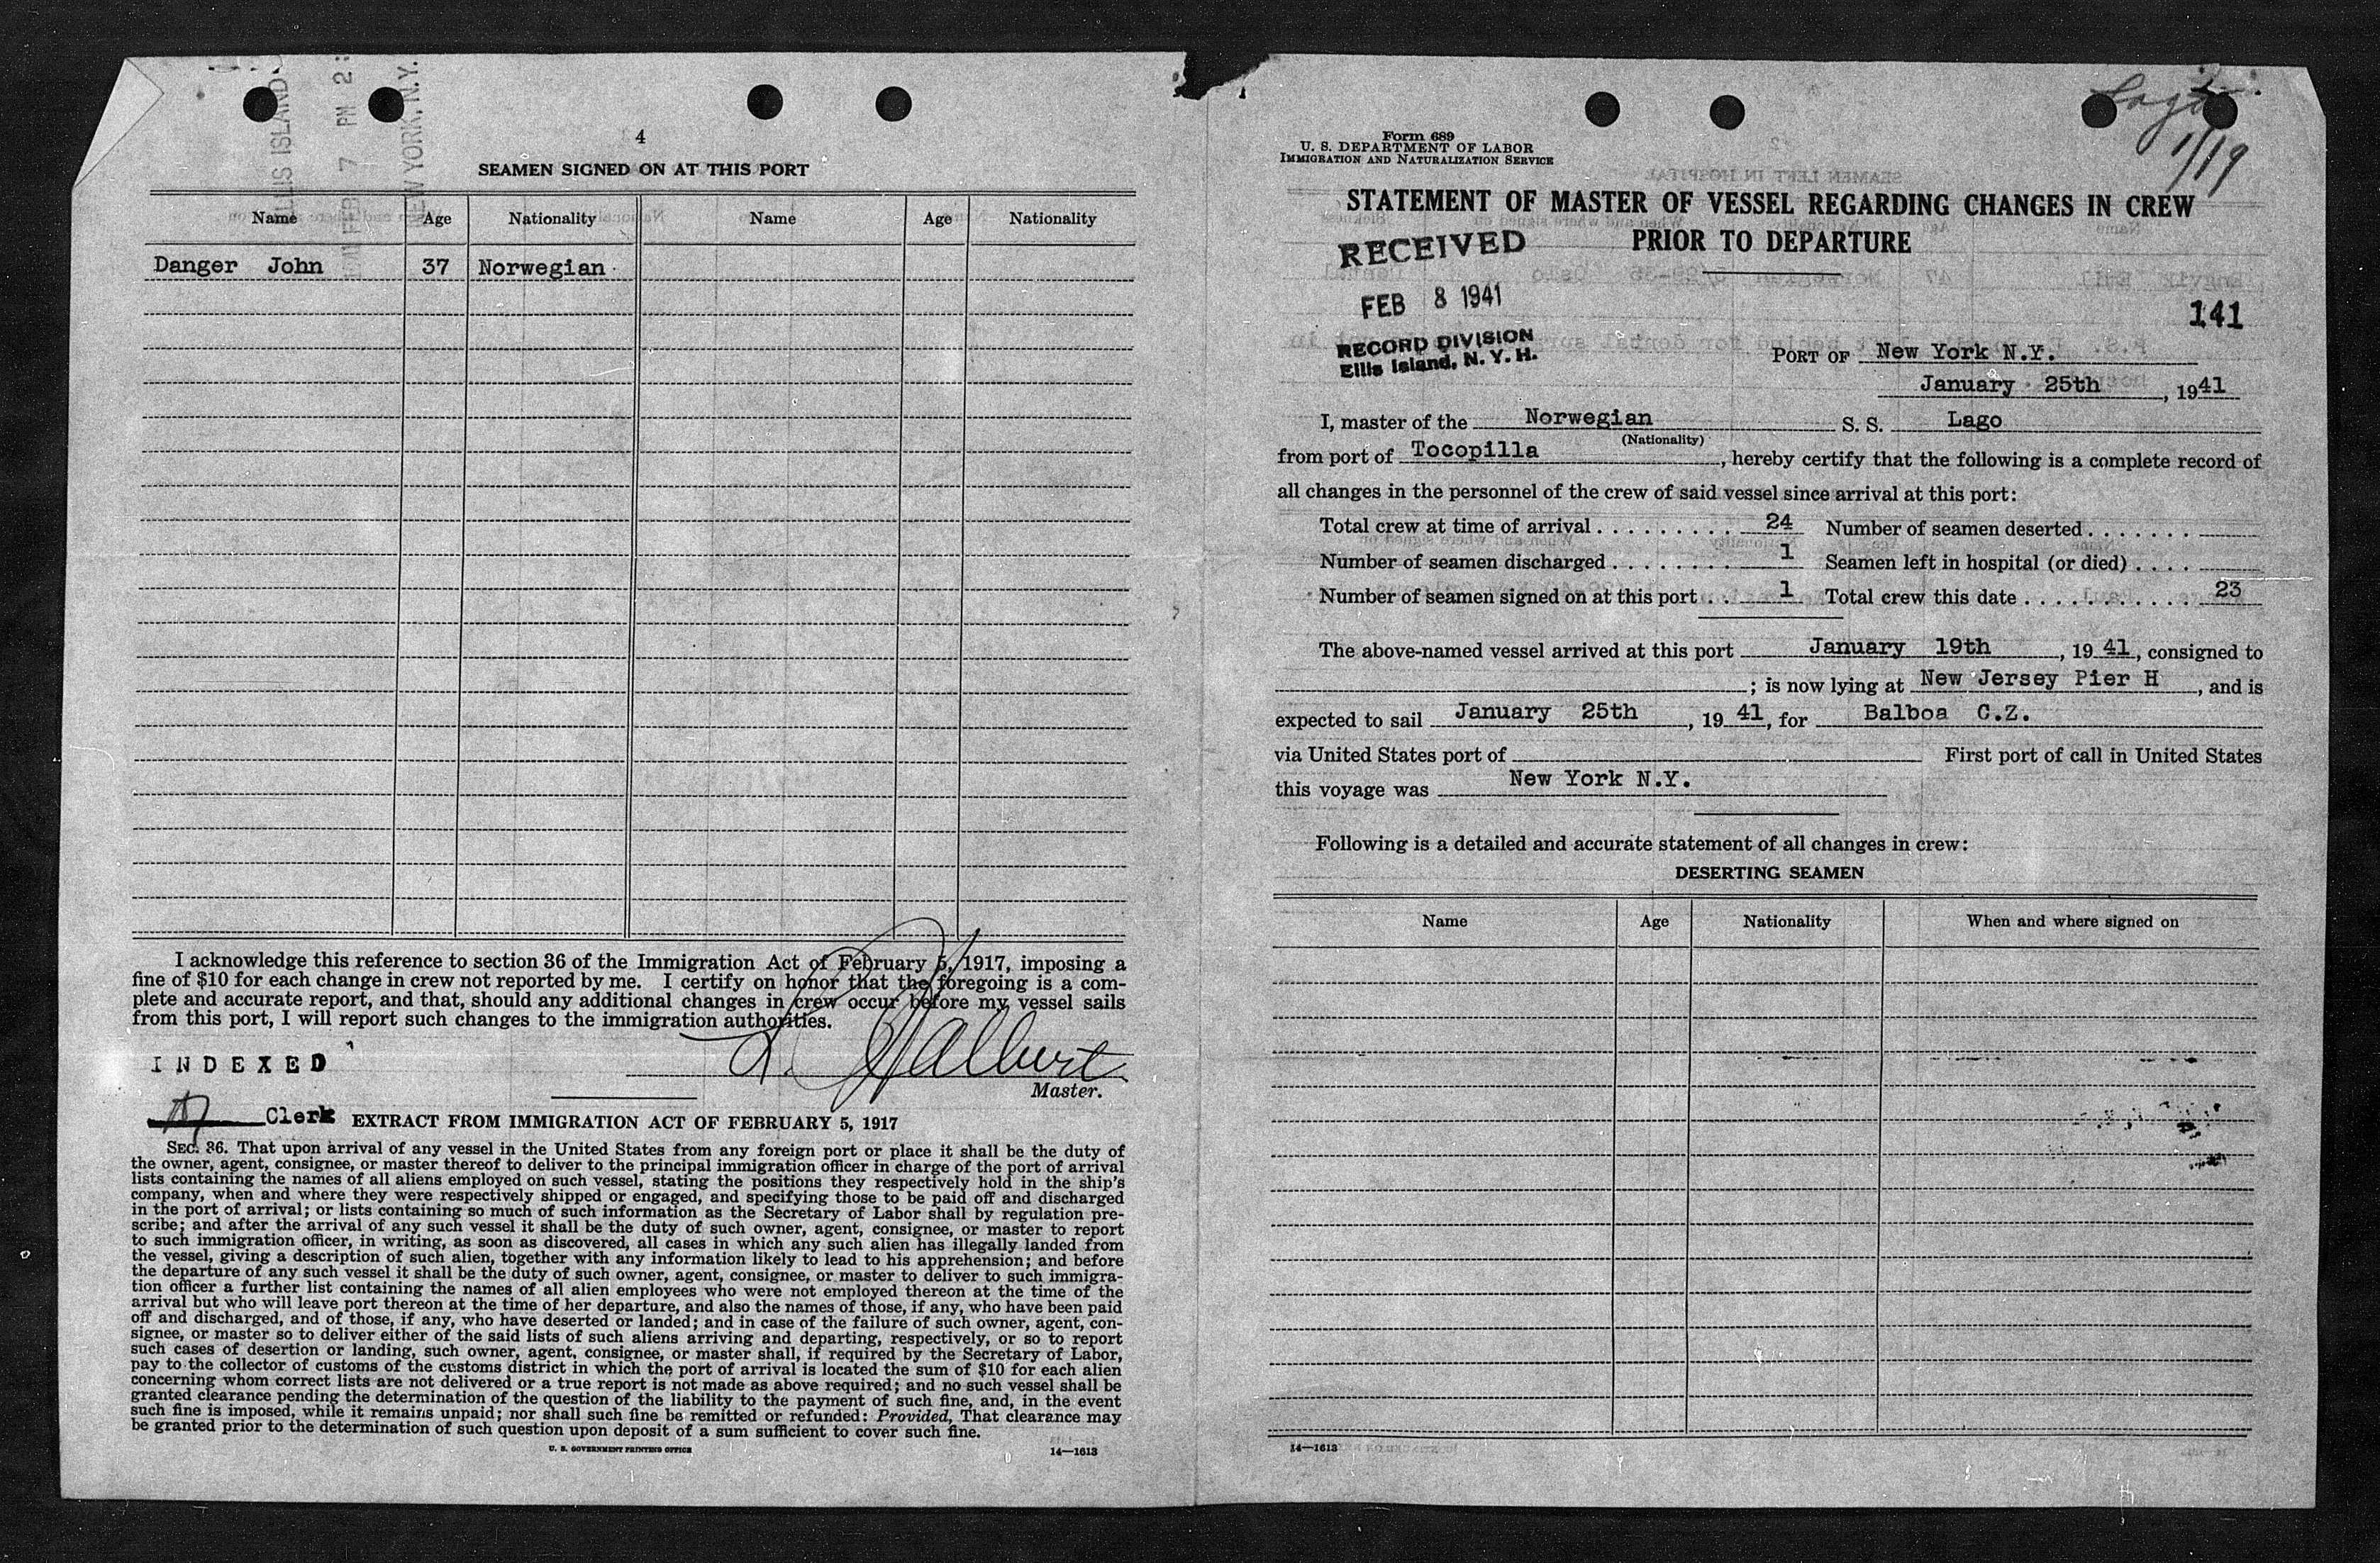 4
SEAMEN SIGNED ON AT THIS PORT
Name Age Nationality Name Age Nationality
Danger John 37 Norwegian
I acknowledge this reference to section 36 of the Immigration Act of February 5, 1917, imposing a
fine of $10 for each change in crew not reported by me. I certify on honor that the foregoing is a com-
plete and accurate report, and that, should any additional changes in crew occur before my vessel sails
from this port, I will report such changes to the immigration authorities.
INDEXED
Master.
Clerk
EXTRACT FROM IMMIGRATION ACT OF FEBRUARY 5, 1917
SEC. 36. That upon arrival of any vessel in the United States from any foreign port or place it shall be the duty of
the owner, agent, consignee, or master thereof to deliver to the principal immigration officer in charge of the port of arrival
lists containing the names of all aliens employed on such vessel, stating the positions they respectively hold in the ship's
company, when and where they were respectively shipped or engaged, and specifying those to be paid off and discharged
in the port of arrival; or lists containing so much of such information as the Secretary of Labor shall by regulation pre-
scribe; and after the arrival of any such vessel it shall be the duty of such owner, agent, consignee, or master to report
to such immigration officer, in writing, as soon as discovered, all cases in which any such alien has illegally landed from
the vessel, giving a description of such alien, together with any information likely to lead to his apprehension; and before
the departure of any such vessel it shall be the duty of such owner, agent, consignee, or master to deliver to such immigra-
tion officer a further list containing the names of all alien employees who were not employed thereon at the time of the
arrival but who will leave port thereon at the time of her departure, and also the names of those, if any, who have been paid
off and discharged, and of those, if any, who have deserted or landed; and in case of the failure of such owner, agent, con-
signee, or master so to deliver either of the said lists of such aliens arriving and departing, respectively, or so to report
such cases of desertion or landing, such owner, agent, consignee, or master shall, if required by the Secretary of Labor,
pay to the collector of customs of the customs district in which the port of arrival is located the sum of $10 for each alien
concerning whom correct lists are not delivered or a true report is not made as above required; and no such vessel shall be
granted clearance pending the determination of the question of the liability to the payment of such fine, and, in the event
such fine is imposed, while it remains unpaid; nor shall such fine be remitted or refunded: Provided, That clearance may
be granted prior to the determination of such question upon deposit of a sum sufficient to cover such fine.
U. S. GOVERNMENT PRINTING OFFICE 14—1613
Lago
1/19
Form 689
U. S. DEPARTMENT OF LABOR
IMMIGRATION AND NATURALIZATION SERVICE
STATEMENT OF MASTER OF VESSEL REGARDING CHANGES IN CREW
PRIOR TO DEPARTURE
RECEIVED
FEB 8 1941
RECORD DIVISION
Ellis Island, N. Y. H.
141
PORT OF New York N.Y.
January 25th, 1941
I, master of the Norwegian S. S. Lago
(Nationality)
from port of Tocopilla, hereby certify that the following is a complete record of
all changes in the personnel of the crew of said vessel since arrival at this port:
Total crew at time of arrival . . . . . . . . . 24 Number of seamen deserted . . . . . . .
Number of seamen discharged . . . . . . . . 1 Seamen left in hospital (or died) . . . .
Number of seamen signed on at this port . . 1 Total crew this date . . . . . . . . . . . 23
The above-named vessel arrived at this port January 19th, 1941, consigned to
; is now lying at New Jersey Pier H, and is
expected to sail January 25th, 1941, for Balboa C.Z.
via United States port of First port of call in United States
this voyage was New York N.Y.
Following is a detailed and accurate statement of all changes in crew:
DESERTING SEAMEN
Name Age Nationality When and where signed on
14—1613